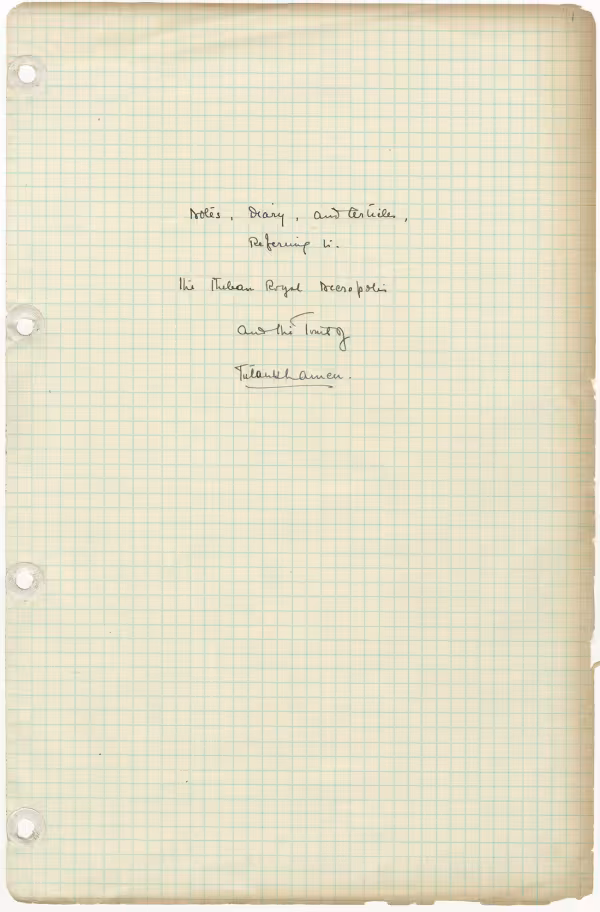 Notes, Diary, and Articles,
Referring to.
the Theban Royal Necropolis
and the Tomb of
Tutankhamen.
1